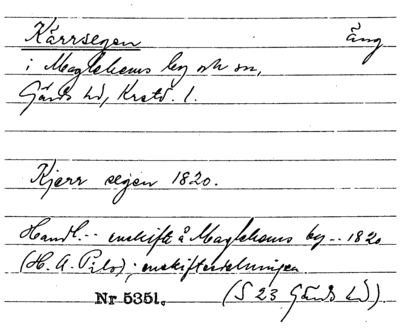 Kärrsegen äng
i Maglehems by och sn,
Gärds hd, Krstd. l.
Kjerr segen 1820.
Handl... enskifte å Maglehems by... 1820
(H. A. Pilo); enskiftesdelningen
Nr 5351. (S 23 Gärds hd).